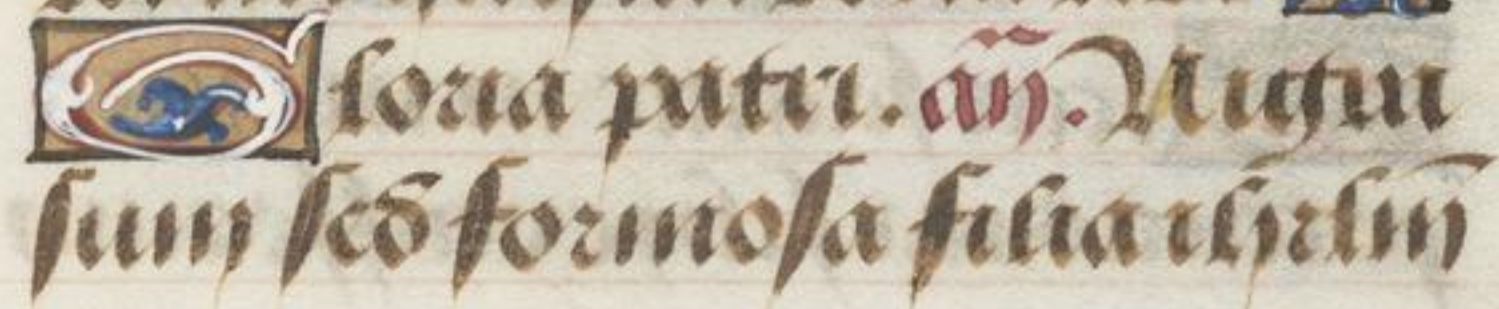 Gloria patri. añ. Nigra
sum sed formosa filia ihrlm̄